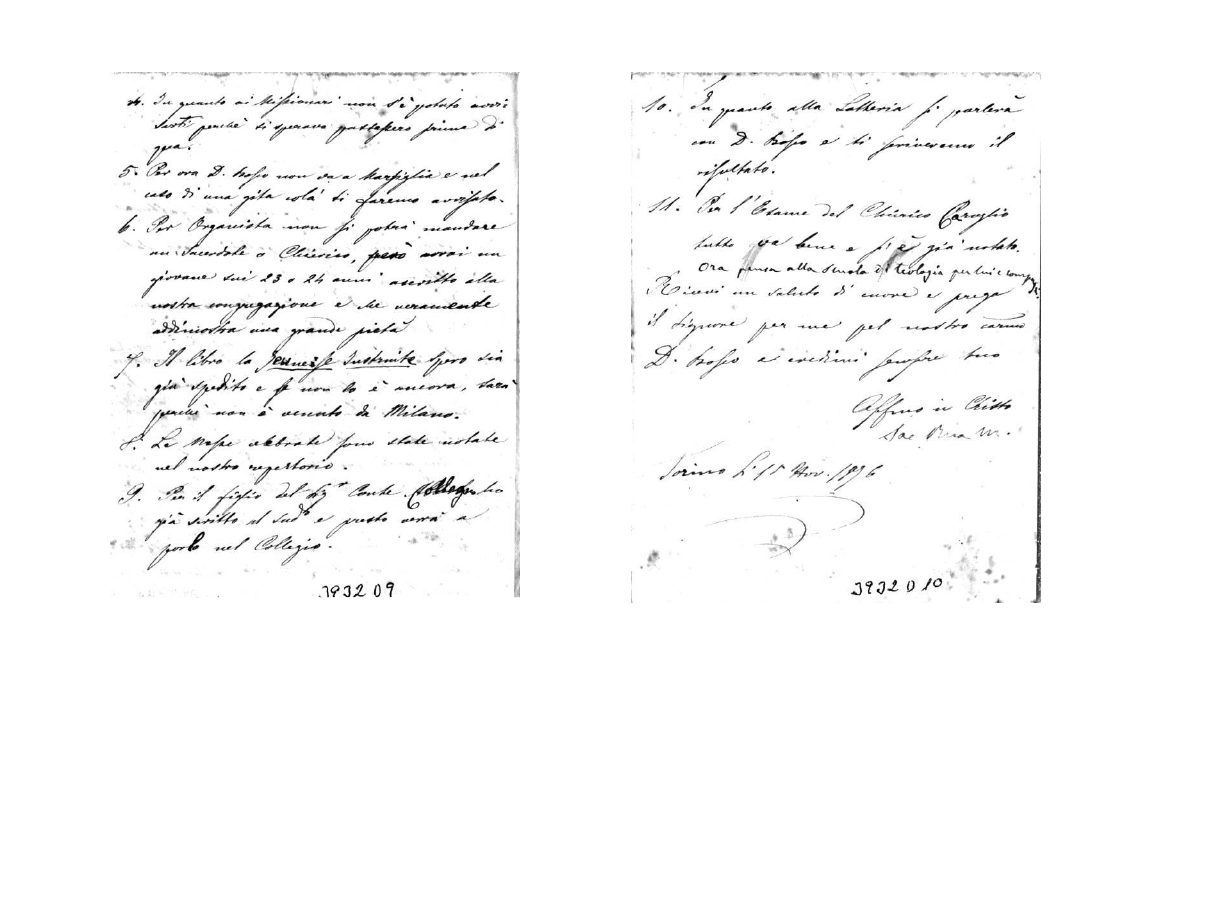 4. In quanto ai Missionari non s'è potuto avvi-
sarti perchè si sperava passassero prima di
qua.
5. Per ora D. Bosco non va a Marsiglia e nel
caso di una gita colà ti faremo avvisato.
6. Per Organista non si potrà mandare
un Sacerdote o Chierico, però avrai un
giovane sui 23 o 24 anni ascritto alla
nostra congregazione e che veramente
addimostra una grande pietà
7. Il libro la Jeunesse Instruite spero sia
già spedito e se non lo è ancora, sarà
perchè non è venuto da Milano.
8. Le Messe celebrate sono state notate
nel nostro repertorio.
9. Per il figlio del Sigr Conte ho
già scritto al Sudo e presto verrà a
porlo nel Collegio.
393209
10. In quanto alla Lotteria si parlerà
con D. Bosco e ti scriveremo il
risultato.
11. Per l'Esame del Chierico Caroglio
tutto va bene e si è già notato.
Ora pensa alla scuola di teologia per lui e
Ricevi un saluto di cuore e prega
il Signore per me pel nostro carmo
D. Bosco e credimi sempre tuo
Affmo in Christo
Sac Rua M.
Torino li 15 Nov. 1876
3932 D 10